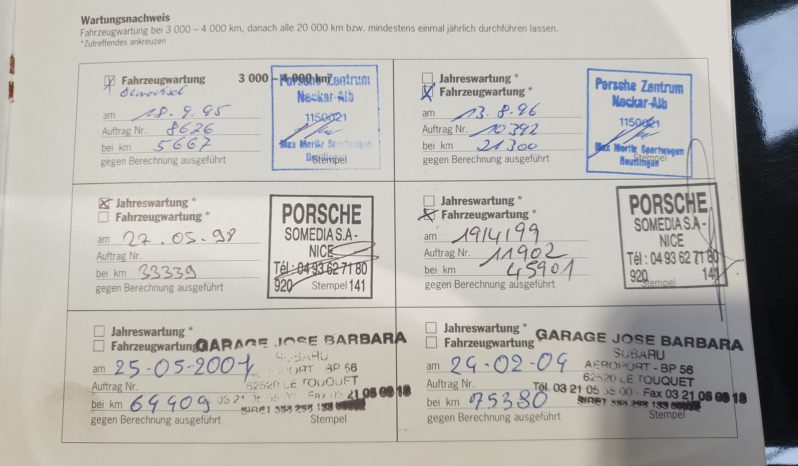 Wartungsnachweis
Fahrzeugwartung bei 3 000 – 4 000 km, danach alle 20 000 km bzw. mindestens einmal jährlich durchführen lassen.
*Zutreffendes ankreuzen
Fahrzeugwartung 3 000 – 4 000 km
Ölwechsel
am 18.9.95
Auftrag Nr. 8626
bei km 5667
gegen Berechnung ausgeführt
Stempel
Porsche Zentrum
Neckar-Alb
1150021
Max Moritz Sportwagen
Reutlingen
Jahreswartung *
Fahrzeugwartung *
am 13.8.96
Auftrag Nr. 10392
bei km 21300
gegen Berechnung ausgeführt
Stempel
Porsche Zentrum
Neckar-Alb
1150021
Max Moritz Sportwagen
Reutlingen
Jahreswartung *
Fahrzeugwartung *
am 27.05.98
Auftrag Nr.
bei km 33339
gegen Berechnung ausgeführt
PORSCHE
SOMEDIA S.A-
NICE
Tél : 04 93 62 71 80
920 Stempel 141
Jahreswartung *
Fahrzeugwartung *
am 19/4/99
Auftrag Nr. 11902
bei km 45901
gegen Berechnung ausgeführt
PORSCHE
SOMEDIA S.A-
NICE
Tél : 04 93 62 71 80
920 Stempel 141
Jahreswartung *
Fahrzeugwartung *
am 25-05-2001
Auftrag Nr.
bei km 69409
gegen Berechnung ausgeführt
Stempel
GARAGE JOSE BARBARA
SUBARU
BP 56
62520 LE TOUQUET
Jahreswartung *
Fahrzeugwartung *
am 24-02-04
Auftrag Nr.
bei km 75380
gegen Berechnung ausgeführt
Stempel
GARAGE JOSE BARBARA
SUBARU
AEROPORT - BP 56
62520 LE TOUQUET
Tél. 03 21 05 - Fax 03 21 05
SIRET